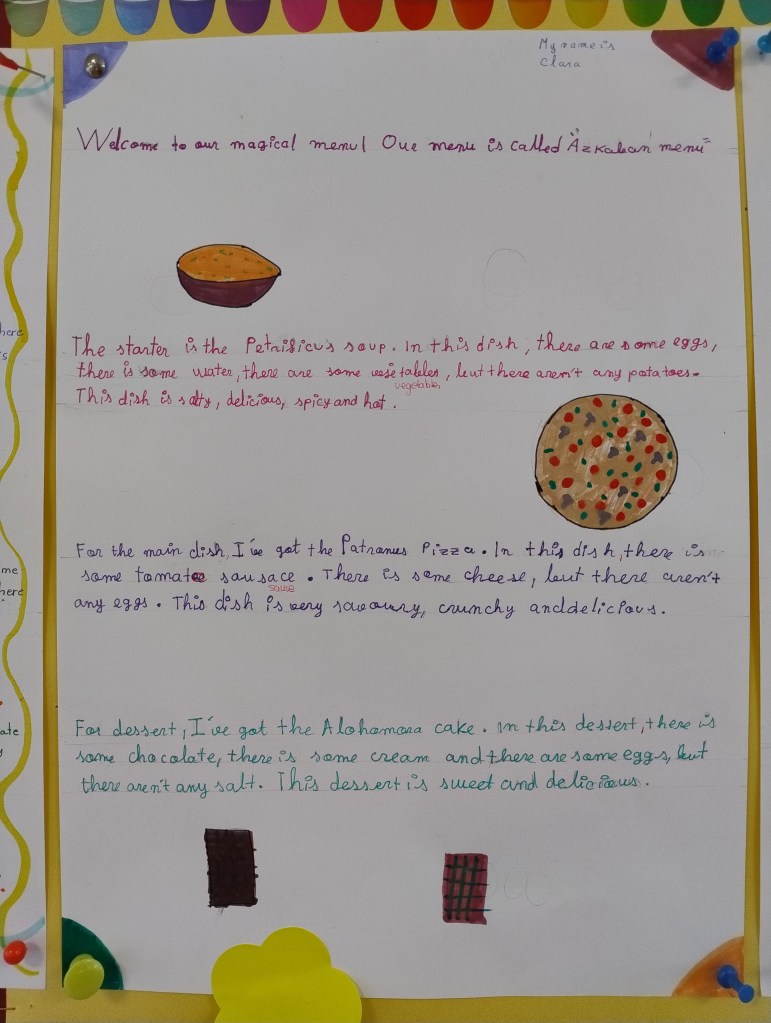 My name is
Clara
Welcome to our magical menu! Our menu is called "Azkaban menu"
The starter is the Petrificus soup. In this dish, there are some eggs,
there is some water, there are some vegetables, but there aren't any potatoes.
vegetables
This dish is salty, delicious, spicy and hot.
For the main dish, I've got the Patronus Pizza. In this dish, there is
some tomatoe sausace. There is some cheese, but there aren't
sause
any eggs. This dish is very savoury, crunchy and delicious.
For dessert, I've got the Alohomora cake. In this dessert, there is
some chocolate, there is some cream and there are some eggs, but
there aren't any salt. This dessert is sweet and delicious.
here
s
me
here
ate